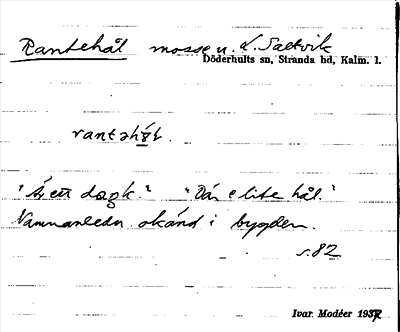 Rantehål mosse u. L. Saltvik
Döderhults sn, Stranda hd, Kalm. l.
rantəhǫ́l.
"Är ett dazk." "Där e lite hål."
Namnanledn. okänd i bygden.
s. 82
Ivar Modéer 1937